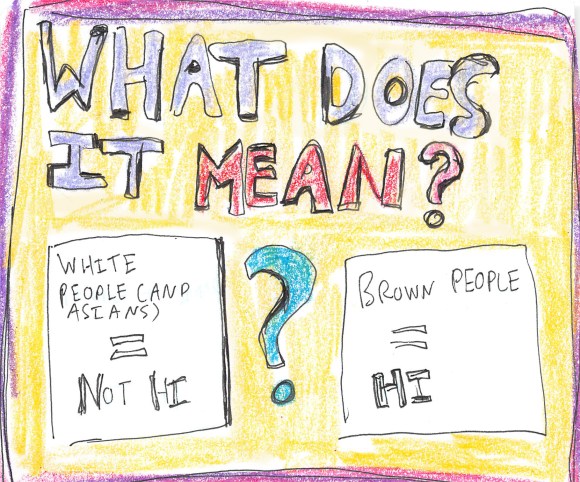 WHAT DOES
IT MEAN?
WHITE
PEOPLE (AND
ASIANS)
=
NOT HI
?
BROWN PEOPLE
=
HI